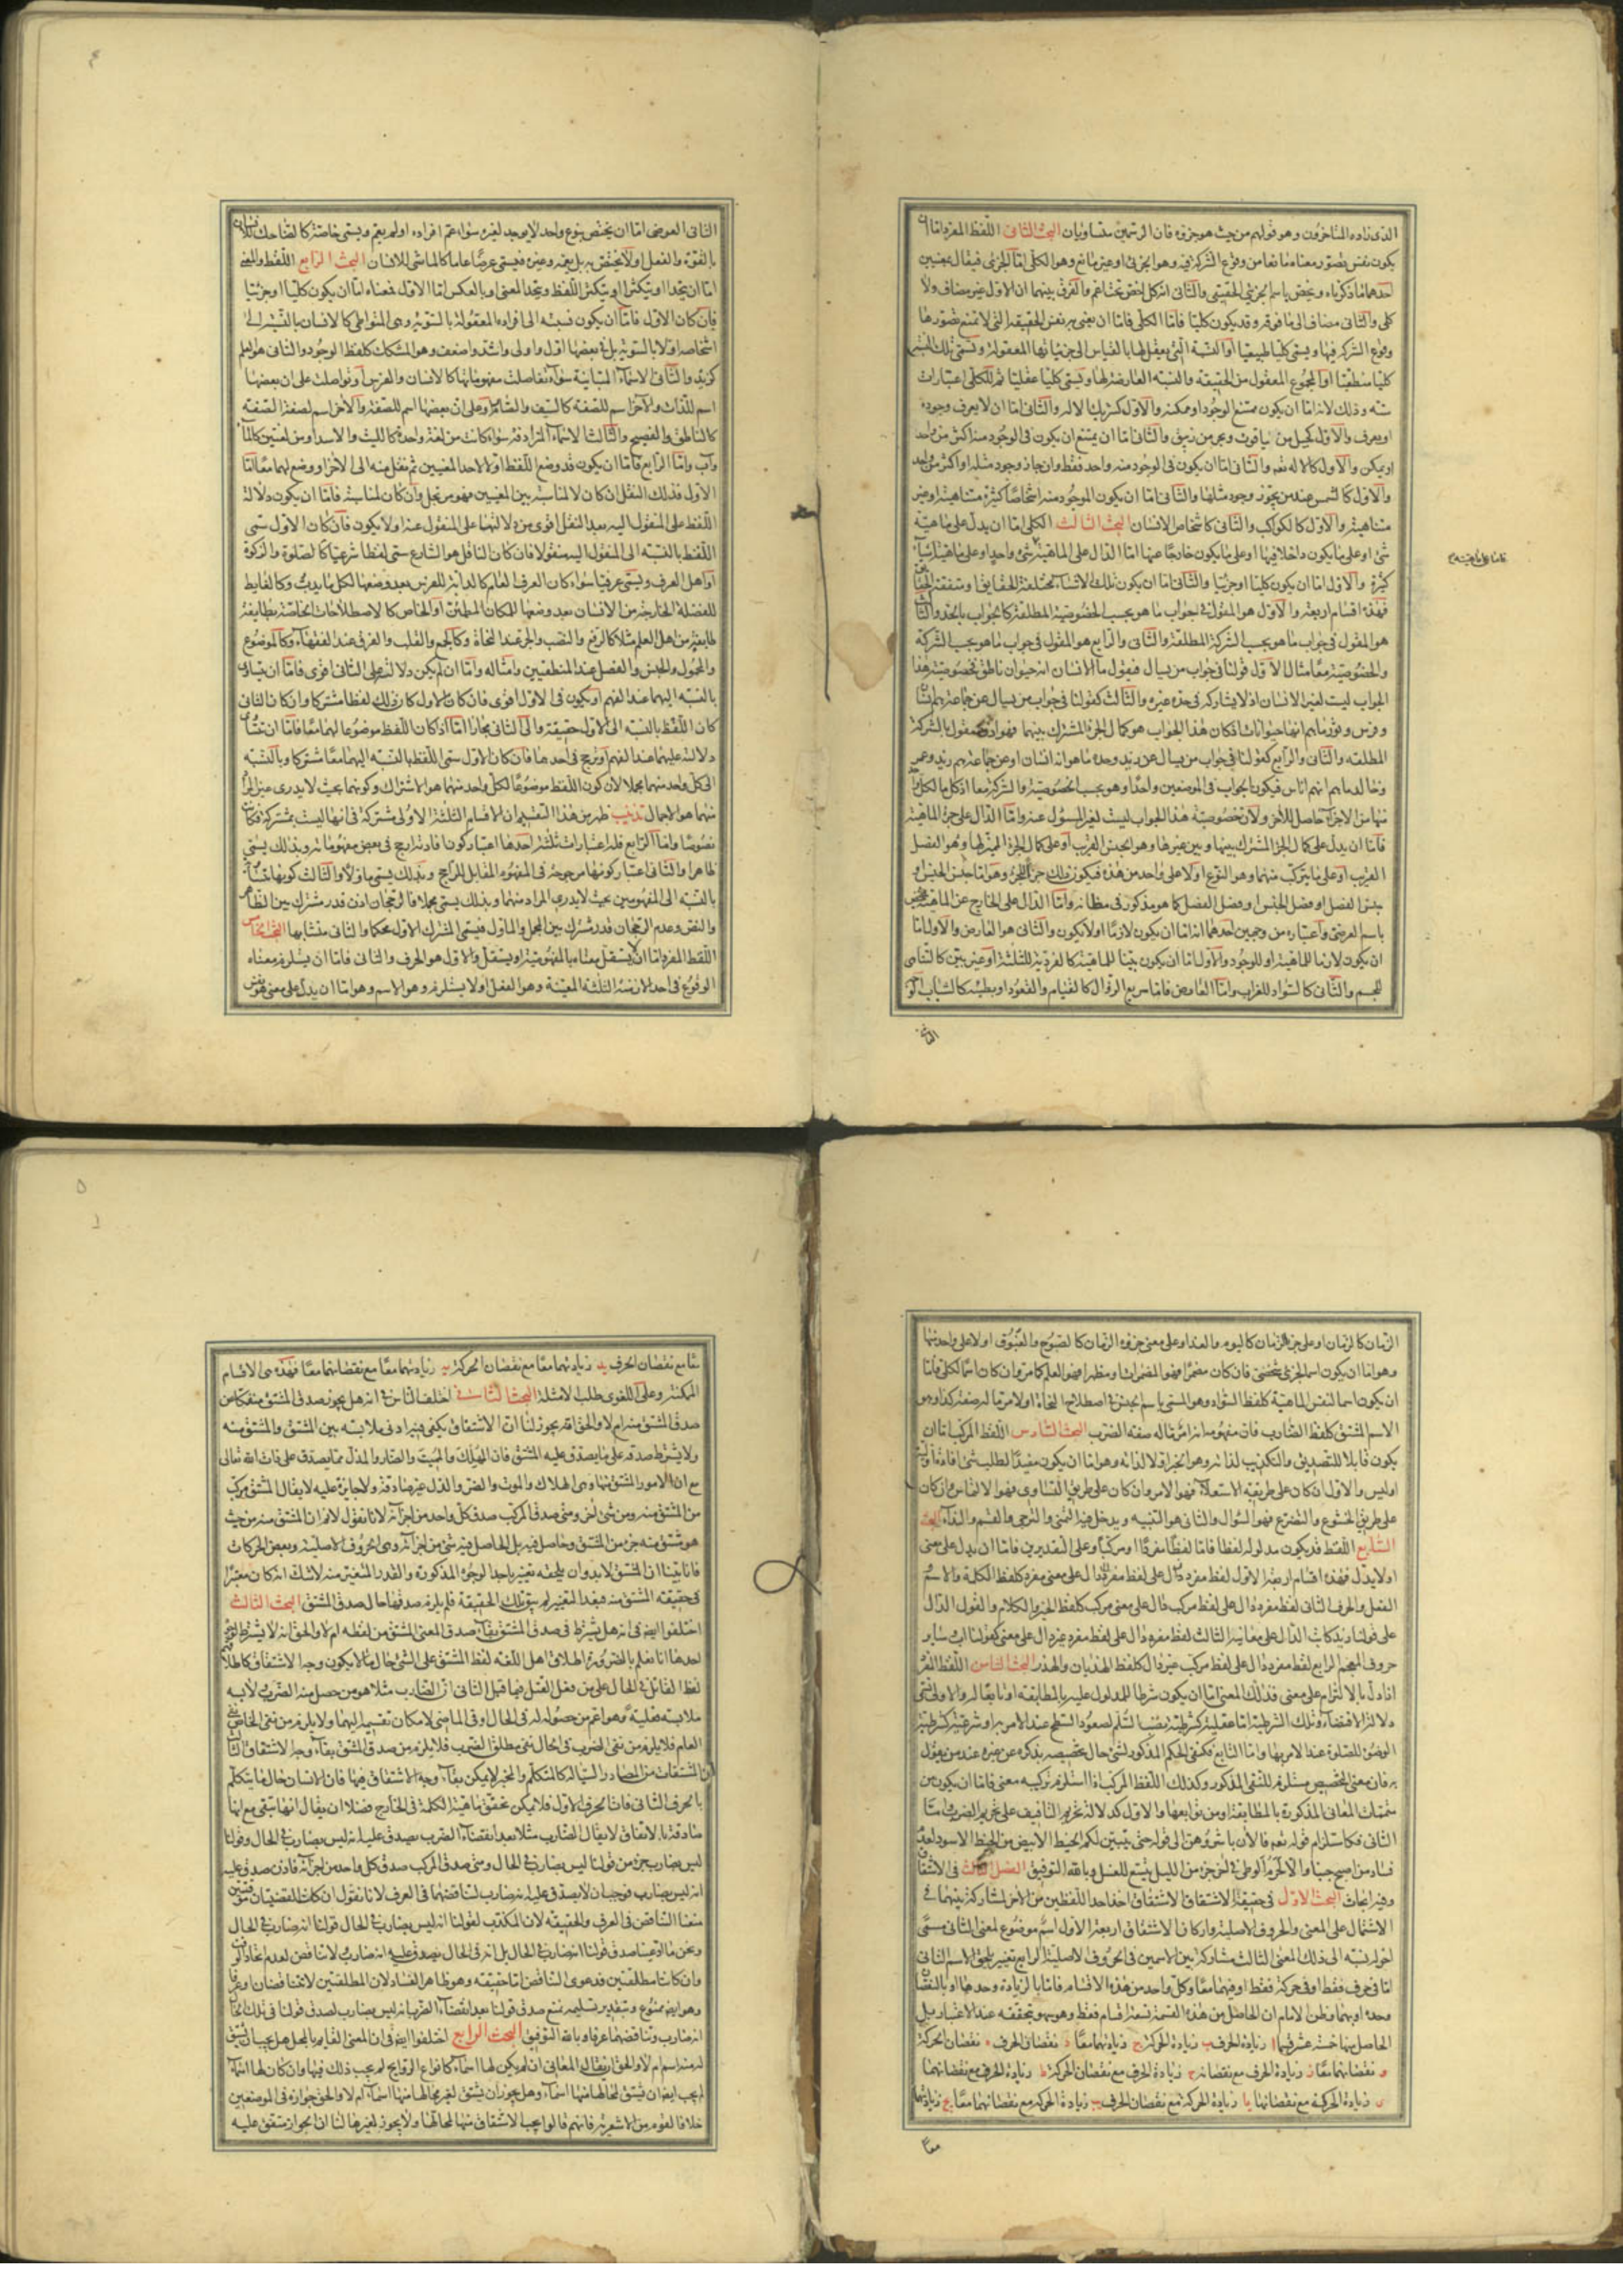 الذى زاده المتاخرون وهو قولهم من حيث هو جزؤه فان الرسمين متساويان البحث الثانى اللفظ المفرد اما ان
يكون نفس تصور معناه مانعا من وقوع الشركة فيه وهو الجزئى او غير مانع وهو الكلى اما الجزئى فيقال بمعنيين
احدهما ما ذكرناه ويخص باسم الجزئى الحقيقى والثانى انه كل اخص تحت اعم والفرق بينهما ان الاول غير مضاف ولا
كلى والثانى مضاف الى ما فوقه وقد يكون كليا فاما الكلى فاما ان يعنى به نفس الحقيقة التى لا تمنع تصورها
وقوع الشركة فيها ويسمى كليا طبيعيا او النسبة التى يعقل لها بالقياس الى جزئياتها المعقولة وتسمى تلك النسبة
كليا منطقيا او المجموع المعقول من الحقيقة والنسبة العارضة لها ويسمى كليا عقليا ثم للكلى اعتبارات
ستة وذلك لانه اما ان يكون ممتنع الوجود او ممكنه والاول كشريك الاله والثانى اما ان لا يعرف وجوده
او يعرف والاول كجبل من ياقوت وبحر من زيبق والثانى اما ان يمتنع ان يكون فى الوجود منه اكثر من واحد
او يمكن والاول كالاله تعه والثانى اما ان يكون فى الوجود منه واحد فقط وان جاز وجود مثله او اكثر من واحد
والاول كالشمس عند من يجوز وجود مثلها والثانى اما ان يكون الموجود منه اشخاصا كثيرة متناهية او غير
متناهية والاول كالكواكب والثانى كاشخاص الانسان البحث الثالث الكلى اما ان يدل على ماهية
شئ او على ما يكون داخلا فيها او على ما يكون خارجا عنها اما الدال على الماهية شئ واحد او على ماهية اشياء
كثيرة والاول اما ان يكون كليا او جزئيا والثانى اما ان يكون تلك الاشياء مختلفة الحقايق او متفقة الحقايق
فهذه اقسام اربعة والاول هو المقول فى جواب ما هو بحسب الخصوصية المطلقة كالجواب بالحد والثالث
هو المقول فى جواب ما هو بحسب الشركة المطلقة والثانى والرابع هو المقول فى جواب ما هو بحسب الشركة
والخصوصية معا مثال الاول قولنا فى جواب من يسال فيقول ما الانسان انه حيوان ناطق فخصوصية هذا
الجواب ليست لغير الانسان اذ لا يشاركه فى حده غيره والثالث كقولنا فى جواب من يسال عن جماعة هم انسان
وفرس وثور ما هم انها حيوانات فكان هذا الجواب هو كمال الجزء المشترك بينهما فهو اذن مقول بالشركة
المطلقة والثانى والرابع كقولنا فى جواب من يسال عن زيد وحده ما هو انه انسان او عن جماعة هم زيد وعمرو
وخالد ما هم انهم اناس فيكون الجواب فى الموضعين واحدا وهو بحسب الخصوصية والشركة معا اذ كل ما لكل واحد
منها من الاجزاء حاصل للآخر ولان خصوصية هذا الجواب ليست لغير المسؤل عنه واما الدال على جزء الماهية
فاما ان يدل على كمال الجزء المشترك بينها وبين غيرها وهو الجنس القريب او على كمال الجزء المميز لها وهو الفصل
القريب او على ما يتركب منهما وهو النوع او لا على واحد من هذه فيكون ذلك جزء الجزء وهو اما جنس الجنس او
جنس الفصل او فصل الجنس او فصل الفصل كما هو مذكور فى مظانه واما الدال على الخارج عن الماهية فيختص
باسم العرضى واعتباره من وجهين احدهما انه اما ان يكون لازما او لا يكون والثانى هو العارض والاول اما
ان يكون لازما للماهية او للوجود والاول اما ان يكون بينا للماهية كالفردية للثلثة او غير بين كالتناهى
للجسم والثانى كالسواد للغراب واما العارض فاما سريع الزوال كالقيام والقعود او بطيئه كالشباب
الثانى
الثانى العرضى اما ان يختص بنوع واحد لا يوجد لغيره سواء عم افراده او لم يعم ويسمى خاصة كالضاحك للانسان
بالقوة والفعل او لا يختص به بل يعمه وغيره فيسمى عرضا عاما كالماشى للانسان البحث الرابع اللفظ والمعنى
اما ان يتحدا او يتكثرا او يتكثر اللفظ ويتحد المعنى او بالعكس اما الاول فمعناه اما ان يكون كليا او جزئيا
فان كان الاول فاما ان يكون نسبته الى افراده المعقولة بالسوية وهى المتواطى كالانسان بالنسبة الى
اشخاصه او لا بالسوية بل فى بعضها اقدم واولى واشد واضعف وهو المشكك كلفظ الوجود والثانى هو العلم
كزيد والثانى الاسماء المتباينة سواء تفاصلت مفهوماتها كالانسان والفرس او تواصلت على ان بعضها
اسم للذات والآخر اسم للصفة كالسيف والصارم او على ان بعضها اسم للصفة والآخر اسم لصفة الصفة
كالناطق والفصيح والثالث الاسماء المترادفة سواء كانت من لغة واحدة كالليث والاسد او من لغتين كالماء
وآب واما الرابع فاما ان يكون قد وضع اللفظ اولا لاحد المعنيين ثم نقل منه الى الآخر او وضع لهما معا اما
الاول فذلك النقل ان كان لا لمناسبة بين المعنيين فهو مرتجل وان كان لمناسبة فاما ان يكون دلالة
اللفظ على المنقول اليه بعد النقل اقوى من دلالتها على المنقول عنه او لا يكون فان كان الاول سمى
اللفظ بالنسبة الى المنقول اليه منقولا فان كان الناقل هو الشارع سمى لفظا شرعيا كالصلوة والزكوة
او اهل العرف ويسمى عرفيا سواء كان العرف العام كالدابة للفرس بعد وضعها لكل ما يدب وكالغايط
للفضلة الخارجة من الانسان بعد وضعها للمكان المطمئن او الخاص كالاصطلاحات الخاصة بطايفة
طايفة من اهل العلم مثلا كالرفع والنصب والجر عند النحاة وكالجمع والقلب والفرق عند الفقهاء وكالموضوع
والمحمول والجنس والفصل عند المنطقيين وامثاله واما ان لم يكن دلالته على الثانى اقوى فاما ان يتساوى
بالنسبة اليهما عند الفهم او يكون فى الاول اقوى فان كان الاول كان ذلك لفظا مشتركا وان كان الثانى
كان اللفظ بالنسبة الى الاول حقيقة والى الثانى مجازا اما اذا كان اللفظ موضوعا لهما معا فاما ان
دلالته عليهما عند الفهم او ترجح فى احدهما فان كان الاول سمى اللفظ بالنسبة اليهما معا مشتركا وبالنسبة
الى كل واحد منهما مجملا لان كون اللفظ موضوعا لكل واحد منهما هو الاشتراك وكونهما بحيث لا يدرى عين المراد
منهما هو الاجمال تذنيب ظهر من هذا التقسيم ان الاقسام الثلثة الاولى مشتركة فى انها ليست بمشتركة فكانت
نصوصا واما الرابع فله اعتبارات ثلثة احدها اعتبار كون افادته ارجح فى بعض مفهوماته وبذلك يسمى
ظاهرا والثانى اعتبار كونها مرجوحة فى المفهوم المقابل للراجح وبذلك يسمى ماولا والثالث كونها
بالنسبة الى المفهومين بحيث لا يدرى المراد منهما وبذلك يسمى مجملا فالرجحان اذن قدر مشترك بين الظاهر
والنص وعدم الرجحان قدر مشترك بين المجمل والماول فيسمى المشترك الاول محكما والثانى متشابها البحث الخامس
اللفظ المفرد اما ان لا يستقل معناه بالمفهومية او يستقل والاول هو الحرف والثانى فاما ان يستلزم معناه
الوقوع فى احد الازمنة الثلثة المعينة وهو الفعل او لا يستلزم وهو الاسم وهو اما ان يدل على معنى هو نفس
الزمان كالزمان او على جزء الزمان كاليوم والغد او على معنى جزؤه الزمان كالصبوح والغبوق او لا على واحد منها
وهو اما ان يكون اسم الجزئى شخصى فان كان مضمرا فهو المضمرات او مظهرا فهو العلم كما مر وان كان اسما لكلى فاما
ان يكون اسما لنفس الماهية كلفظ السواد وهو المسمى باسم الجنس فى اصطلاح النحاة او لامر ما له صفة كذا وهو
الاسم المشتق كلفظ الضارب فان مفهومه انه امر ما له صفة الضرب البحث السادس اللفظ المركب اما ان
يكون قابلا للتصديق والتكذيب لذاته وهو الخبر او لا لذاته وهو اما ان يكون مفيدا لطلب شئ افادة اولية
او ليس والاول ان كان على طريقة الاستعلاء فهو الامر وان كان على طريق التساوى فهو الالتماس وان كان
على طريق الخشوع والتضرع فهو السؤال والثانى هو التنبيه ويدخل فيه التمنى والترجى والقسم والنداء البحث
السابع اللفظ قد يكون مدلوله لفظا فاما لفظا مفردا او مركبا وعلى التقديرين فاما ان يدل على معنى
او لا يدل فهذه اقسام اربعة الاول لفظ مفرد دال على لفظ مفرد دال على معنى مفرد كلفظ الكلمة والاسم
الفعل والحرف الثانى لفظ مفرد دال على لفظ مركب دال على معنى مركب كلفظ الخبر والكلام والقول الدال
على قولنا زيد كاتب الدال على معانيه الثالث لفظ مفرد دال على لفظ مفرد غير دال على معنى كقولنا ا ب وساير
حروف المعجم الرابع لفظ مفرد دال على لفظ مركب غير دال كلفظ الهذيان والهذر البحث الثامن اللفظ المفرد
اذا دل بالالتزام على معنى فذلك المعنى اما ان يكون شرطا للمدلول عليه بالمطابقة او تابعا له والاولى تسمى
دلالة الاقتضاء وتلك الشرطية اما عقلية كشرطية نصب السلم لصعود السطح عند الامر به او شرعية كشرطية
الوضوء للصلوة عند الامر بها واما التابع فكنفى الحكم المذكور لشئ حال تخصيصه بذكره عن غيره عند من يقول
به فان معنى التخصيص مستلزم للنفى المذكور وكذلك اللفظ المركب اذا استلزم تركيبه معنى فاما ان يكون من
متممات المعانى المذكورة بالمطابقة او من توابعها والاول كدلالة تحريم التافيف على تحريم الضرب واما
الثانى فكاستلزام قوله تعه فالآن باشروهن الى قوله حتى يتبين لكم الخيط الابيض من الخيط الاسود لعدم
فساد من اصبح جنبا والا لحرم الوطى فى آخر جزء من الليل يتسع للغسل وبالله التوفيق الفصل الثالث فى الاشتقاق
وفيه ابحاث البحث الاول فى حقيقة الاشتقاق الاشتقاق اخذ احد اللفظين من الآخر لمشاركة بينهما فى
الاشتمال على المعنى والحروف الاصلية واركان الاشتقاق اربعة الاول اسم موضوع لمعنى الثانى مسمى
آخر له نسبة الى ذلك المعنى الثالث مشاركة بين الاسمين فى الحروف الاصلية الرابع تغيير يلحق الاسم الثانى
اما فى حرف فقط او فى حركة فقط او فيهما معا وكل واحد من هذه الاقسام فاما بالزيادة وحدها او بالنقصان
وحده او بهما وظن الامام ان الحاصل من هذه القسمة تسعة اقسام فقط وهو سهو وتحققه عند الاعتبار بل
الحاصل منها خمسة عشر قسما ا زيادة الحرف ب زيادة الحركة ج زيادتهما معا د نقصان الحرف ه نقصان الحركة
و نقصانهما معا ز زيادة الحرف مع نقصانه ح زيادة الحرف مع نقصان الحركة ط زيادة الحرف مع نقصانهما
ى زيادة الحركة مع نقصانها يا زيادة الحركة مع نقصان الحرف يب زيادة الحركة مع نقصانهما معا يج زيادتهما
معا
معا مع نقصان الحرف يد زيادتهما معا مع نقصان الحركة يه زيادتهما معا مع نقصانهما معا فهذه هى الاقسام
الممكنة وعلى اللغوى طلب الامثلة البحث الثانى اختلف الناس فى انه هل يجوز صدق المشتق منفكا عن
صدق المشتق منه ام لا والحق انه يجوز لنا ان الاشتقاق يكفى فيه ادنى ملابسة بين المشتق والمشتق منه
ولا يشترط صدقه على ما يصدق عليه المشتق فان المهلك والمميت والضار والمذل مما يصدق على ذات الله تعالى
مع ان الامور المشتق منها وهى الهلاك والموت والضر والذل غير صادقة ولا جايزة عليه لا يقال المشتق مركب
من المشتق منه ومن شئ آخر ومتى صدق المركب صدق كل واحد من اجزائه لانا نقول لا نم ان المشتق منه من حيث
هو مشتق منه جزء من المشتق وحاصل فيه بل الحاصل فيه شئ من اجزائه وهى الحروف الاصلية وبعض الحركات
فانا بينا ان المشتق لا بد وان يلحقه تغيير باحد الوجوه المذكورة والقدر المتغير منه لا شك انه كان معتبرا
فى حقيقة المشتق منه فبعد التغيير لم يبق تلك الحقيقة فلم يلزم صدقها حال صدق المشتق البحث الثالث
اختلفوا ايضا فى انه هل يشترط فى صدق المشتق بقاء صدق المعنى المشتق من لفظه ام لا والحق انه لا يشترط لوجهين
احدهما انا نعلم بالضرورة اطلاق اهل اللغة لفظ المشتق على الشئ حال ما لا يكون وجه الاشتقاق كاطلاقهم
لفظ القاتل فى الحال على من فعل القتل فيما قبل الثانى ان الضارب مثلا هو من حصل منه الضرب لانه
ملابسة فعلية وهو اعم من حصوله له فى الحال وفى الماضى لامكان تقسيمه اليهما ولا يلزم من نفى الخاص نفى
العام فلا يلزم من نفى الضرب فى الحال نفى مطلق الضرب فلا يلزم من صدق المشتق بقاء وجه الاشتقاق الثالث
ان المشتقات من المصادر السيالة كالمتكلم والمخبر لا يمكن بقاء وجه الاشتقاق فيها فان الانسان حال ما يتكلم
بالحرف الثانى فات الحرف الاول فلا يمكن تحقق ماهية الكلمة فى الخارج فضلا ان يقال انها تبقى مع انها
صادقة بالاتفاق لا يقال الضارب مثلا بعد انقضاء الضرب يصدق عليه انه ليس بضارب فى الحال وقولنا
ليس بضارب جزء من قولنا ليس بضارب فى الحال ومتى صدق المركب صدق كل واحد من اجزائه فاذن صدق عليه
انه ليس بضارب فوجب ان لا يصدق عليه انه ضارب لتناقضهما فى العرف لانا نقول ان كانت القضيتان موقتتين
منعنا التناقض فى العرف والحقيقة لان المكذب لقولنا انه ليس بضارب فى الحال قولنا انه ضارب فى الحال
ونحن ما ادعينا صدق قولنا انه ضارب فى الحال بل انه فى الحال يصدق عليه انه ضارب ولا تناقض لعدم اتحاد الوقت
وان كانتا مطلقتين فدعوى التناقض اما حقيقة وهو ظاهر الفساد لان المطلقتين لا تتناقضان او عرفا
وهو ايضا ممنوع وبتقدير تسليمه نمنع صدق قولنا بعد انقضاء الضرب انه ليس بضارب لصدق قولنا فى تلك الحال
انه ضارب وتناقضهما عرفا وبالله التوفيق البحث الرابع اختلفوا ايضا فى ان المعنى القايم بالمحل هل يجب ان يشتق
له منه اسم ام لا والحق ان يقال المعانى ان لم يكن لها اسماء كانواع الروايح لم يجب ذلك فيها وان كان لها اسماء
لم يجب ايضا ان يشتق لمحالها منها اسماء وهل يجوز ان يشتق لغير محالها منها اسماء ام لا والحق جوازه فى الموضعين
خلافا لقوم من الاشعرية فانهم قالوا يجب الاشتقاق منها لمحالها ولا يجوز لغيرها لنا ان الجواز متفق عليه